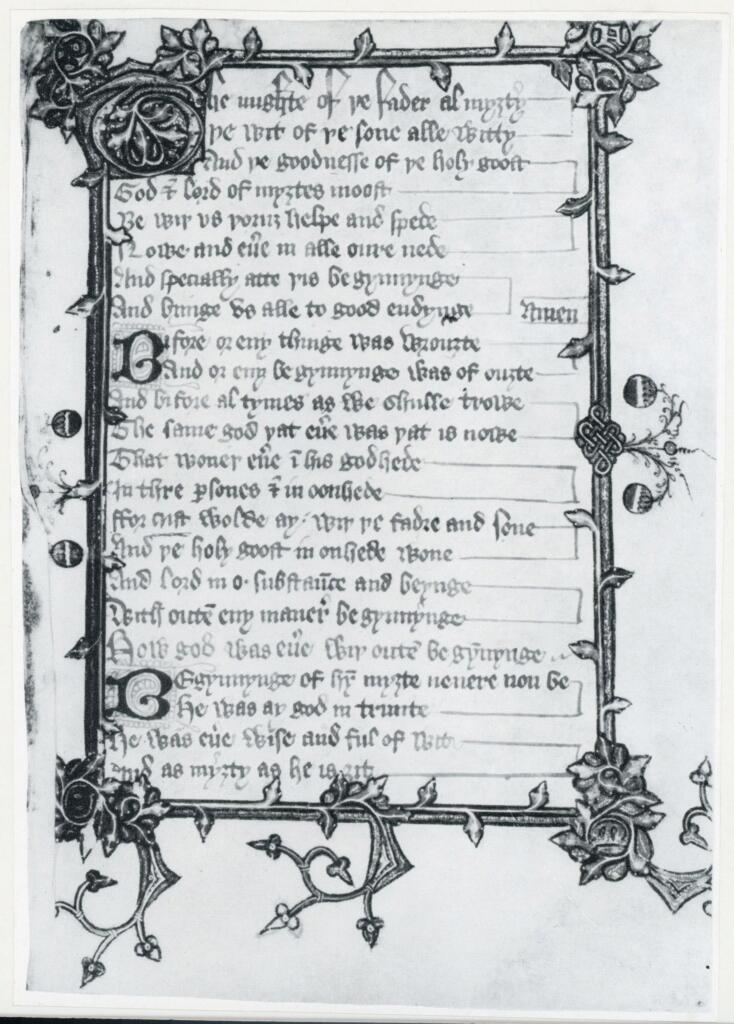 The mighte of þe ffader almyȝty
þe wit of þe sone alle witty
And þe goodnesse of þe holy goost
God & lord of myȝtes moost
Be wiþ vs houre helpe and spede
Nowe and eu̅e in alle oure nede
And specially atte þis begynnynge
And bringe vs alle to good endynge Amen
Bifore or eny thinge was wrouȝte
And or eny begynnynge was of ouȝte
And bifore al tymes as we shulle trowe
The same god þat eu̅e was þat is nowe
That woneþ eu̅e i̅ his godhede
In thre ꝑsones & in oonhede
ffor crist wolde ay wiþ þe fadre and sone
And þe holy goost in onhede wone
And lord in o substau̅ce and beynge
With oute̅ eny maner begynnynge
How god was eu̅e wiþ oute̅ begy̅nynge
Begynnynge of hy̅ myȝte neuere non be
He was ay god in trinite
He was eu̅e wise and ful of wit
And as myȝty as he is ȝit